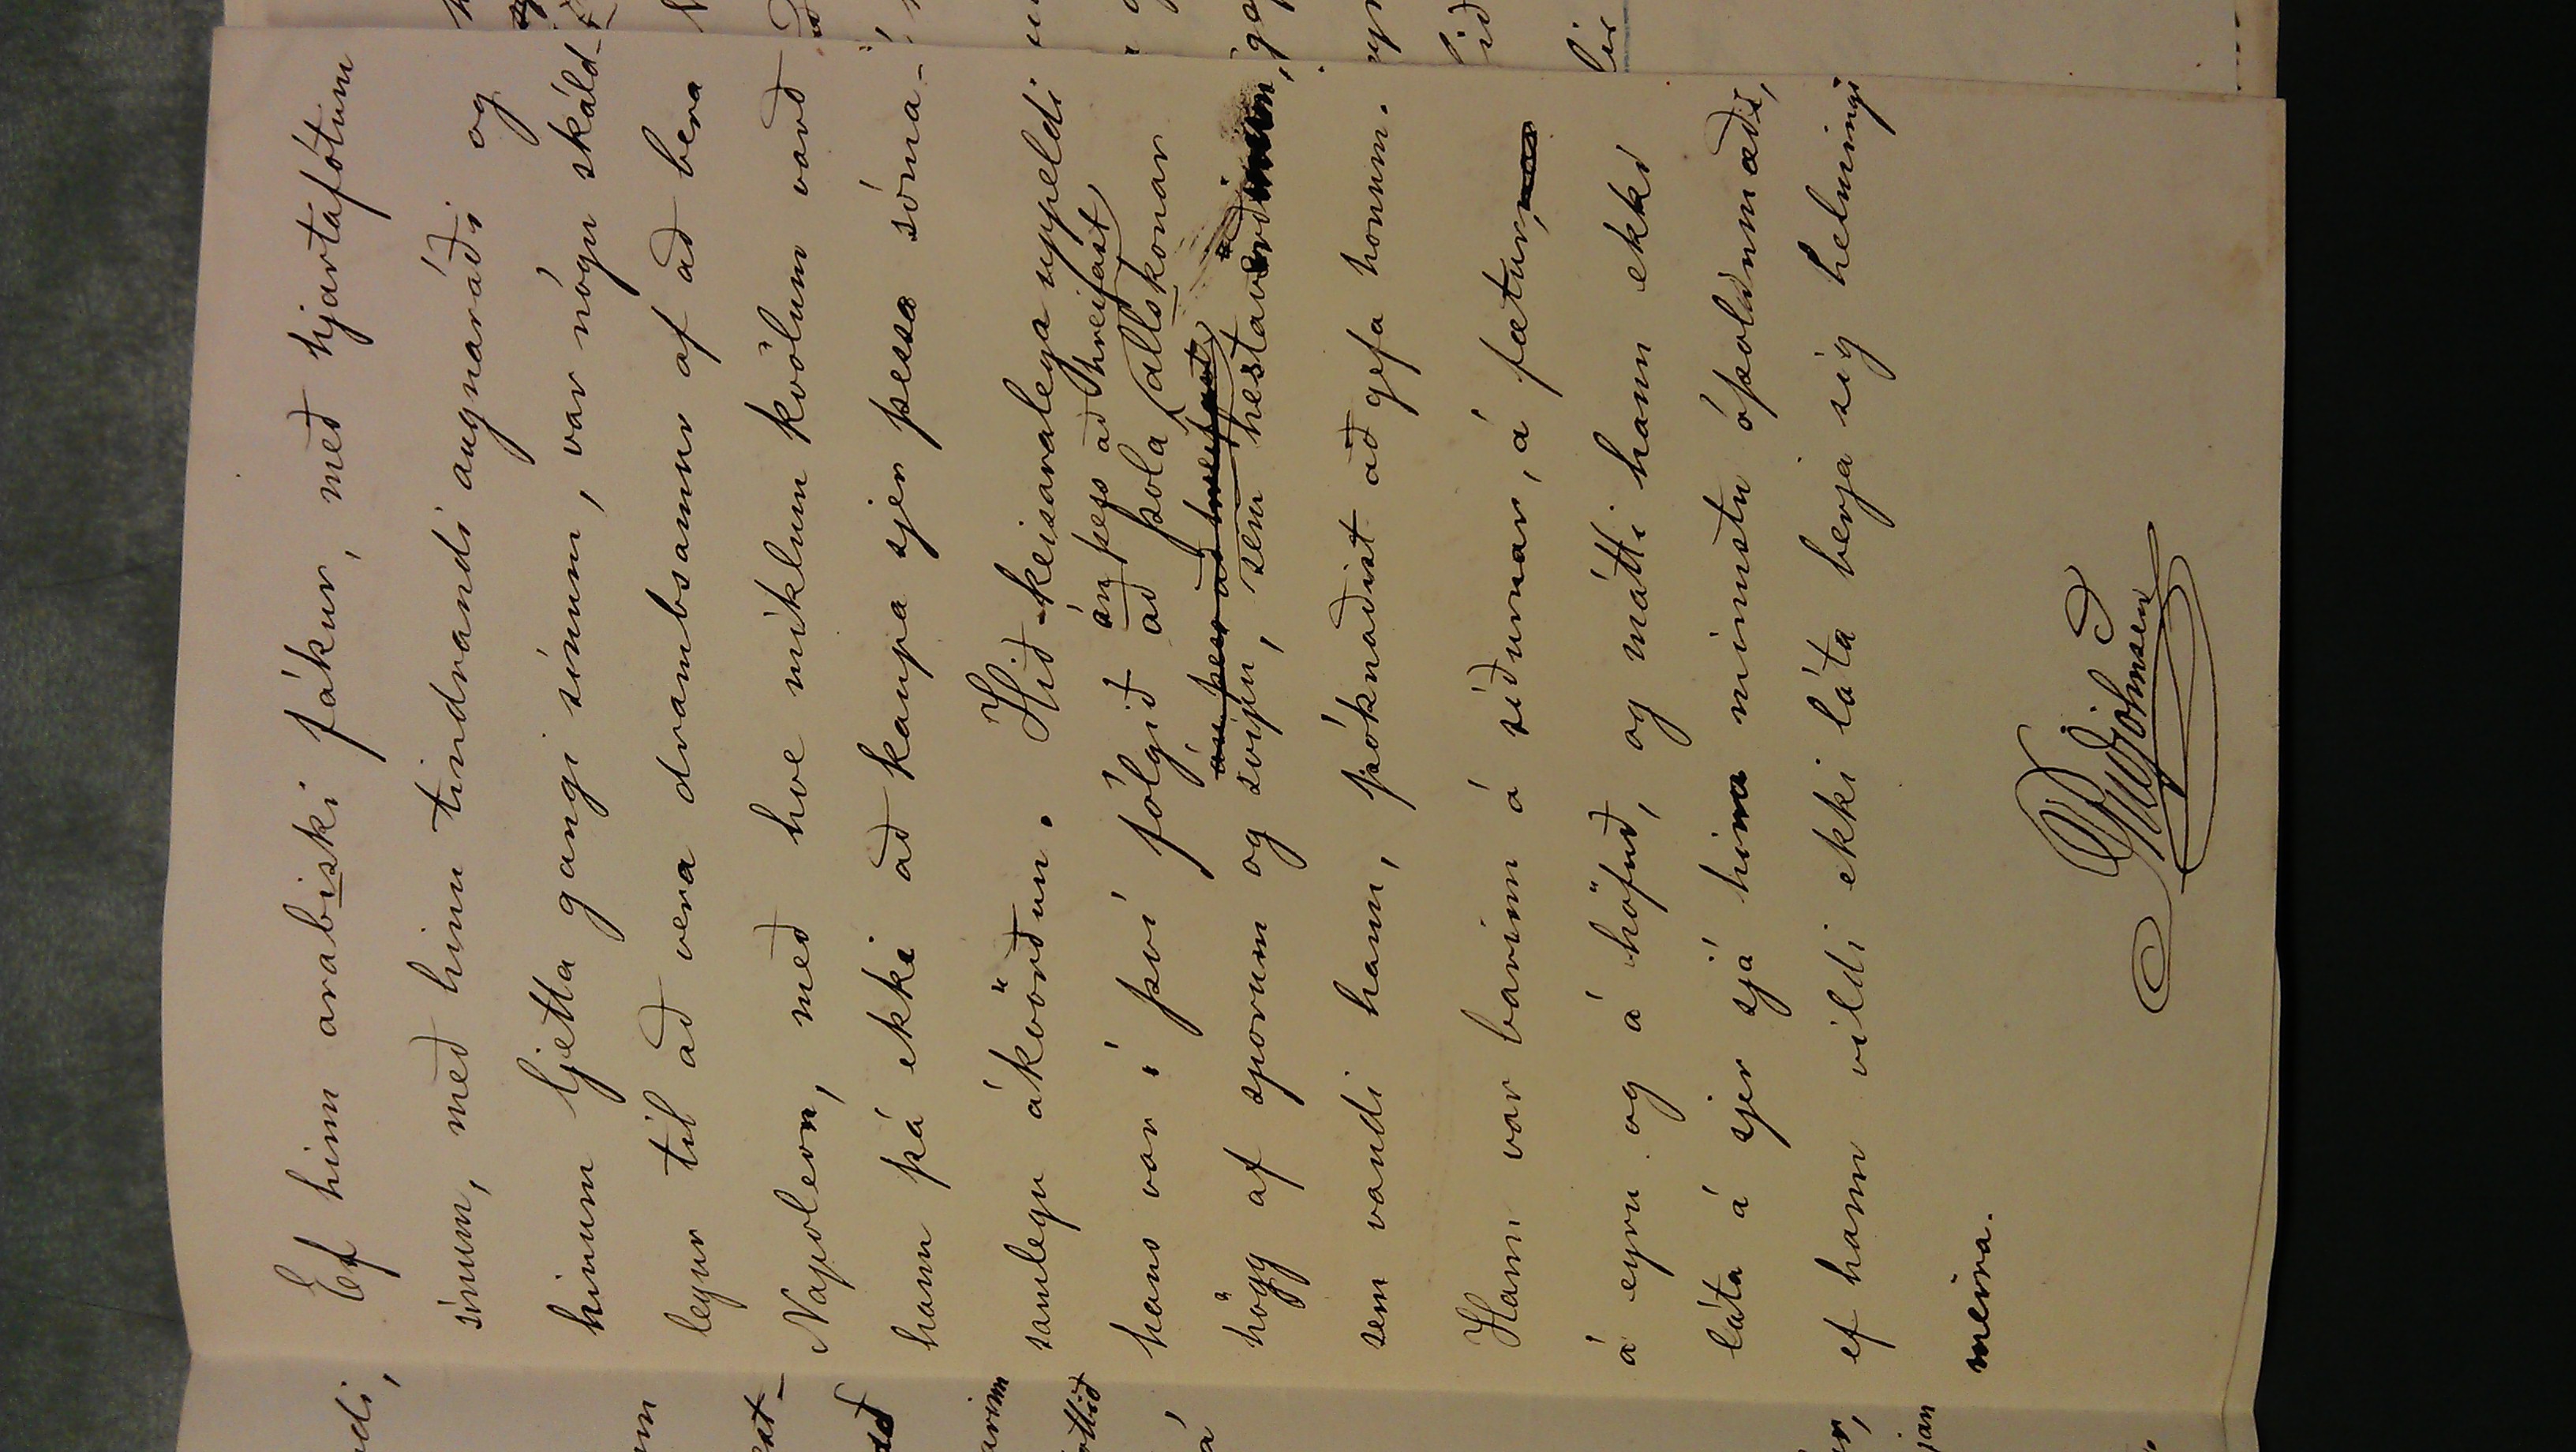 Ef hinn arabiski fákur, með hjartafótum
sínum, með hinu tindrandi augnaráði og
hinum ljetta gangi sínum, var nógu skáld-
legur til að vera drambsamur af að bera
Napoleon, með hve miklum kvölum varð
hann þá ekki að kaupa sjer þessa sóma-
samlegu ákvörðun. Hið keisaralega uppeldi
án þess að hreifast
hans var í því fólgið að þola allskonar
án þess að hreifast
högg af sporum og svipu, sem hestavörðinum,
sem vandi hann, þóknaðist að gefa honum.
Hann var barinn á síðurnar, á fætur,
á eyru og á höfuð, og mátti hann ekki
láta á sjer sjá hina minnstu óþolinmæði,
ef hann vildi ekki láta berja sig helmingi
meira.